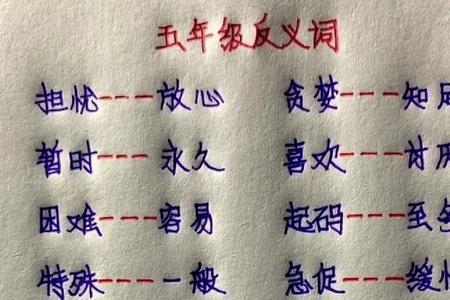 五年级反义词
担忧---放心 贪婪---知
暂时---永久 喜欢---讨
困难---容易 起码---至
特殊---一般 急促---缓